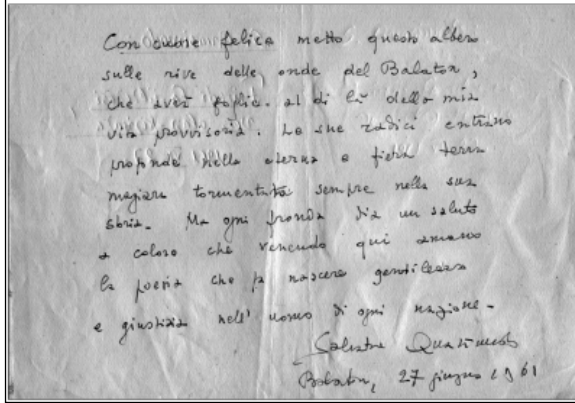 Con cuore felice metto questo albero
sulle rive delle onde del Balaton,
che avrà foglie al di là della mia
vita provvisoria. Le sue radici entrano
profonde nella eterna e fiera terra
magiara tormentata sempre nella sua
storia. Ma ogni fronda dia un saluto
a coloro che venendo qui amano
la poesia che fa nascere gentilezza
e giustizia nell'uomo di ogni nazione.
Salvatore Quasimodo
Balaton, 27 giugno 1961